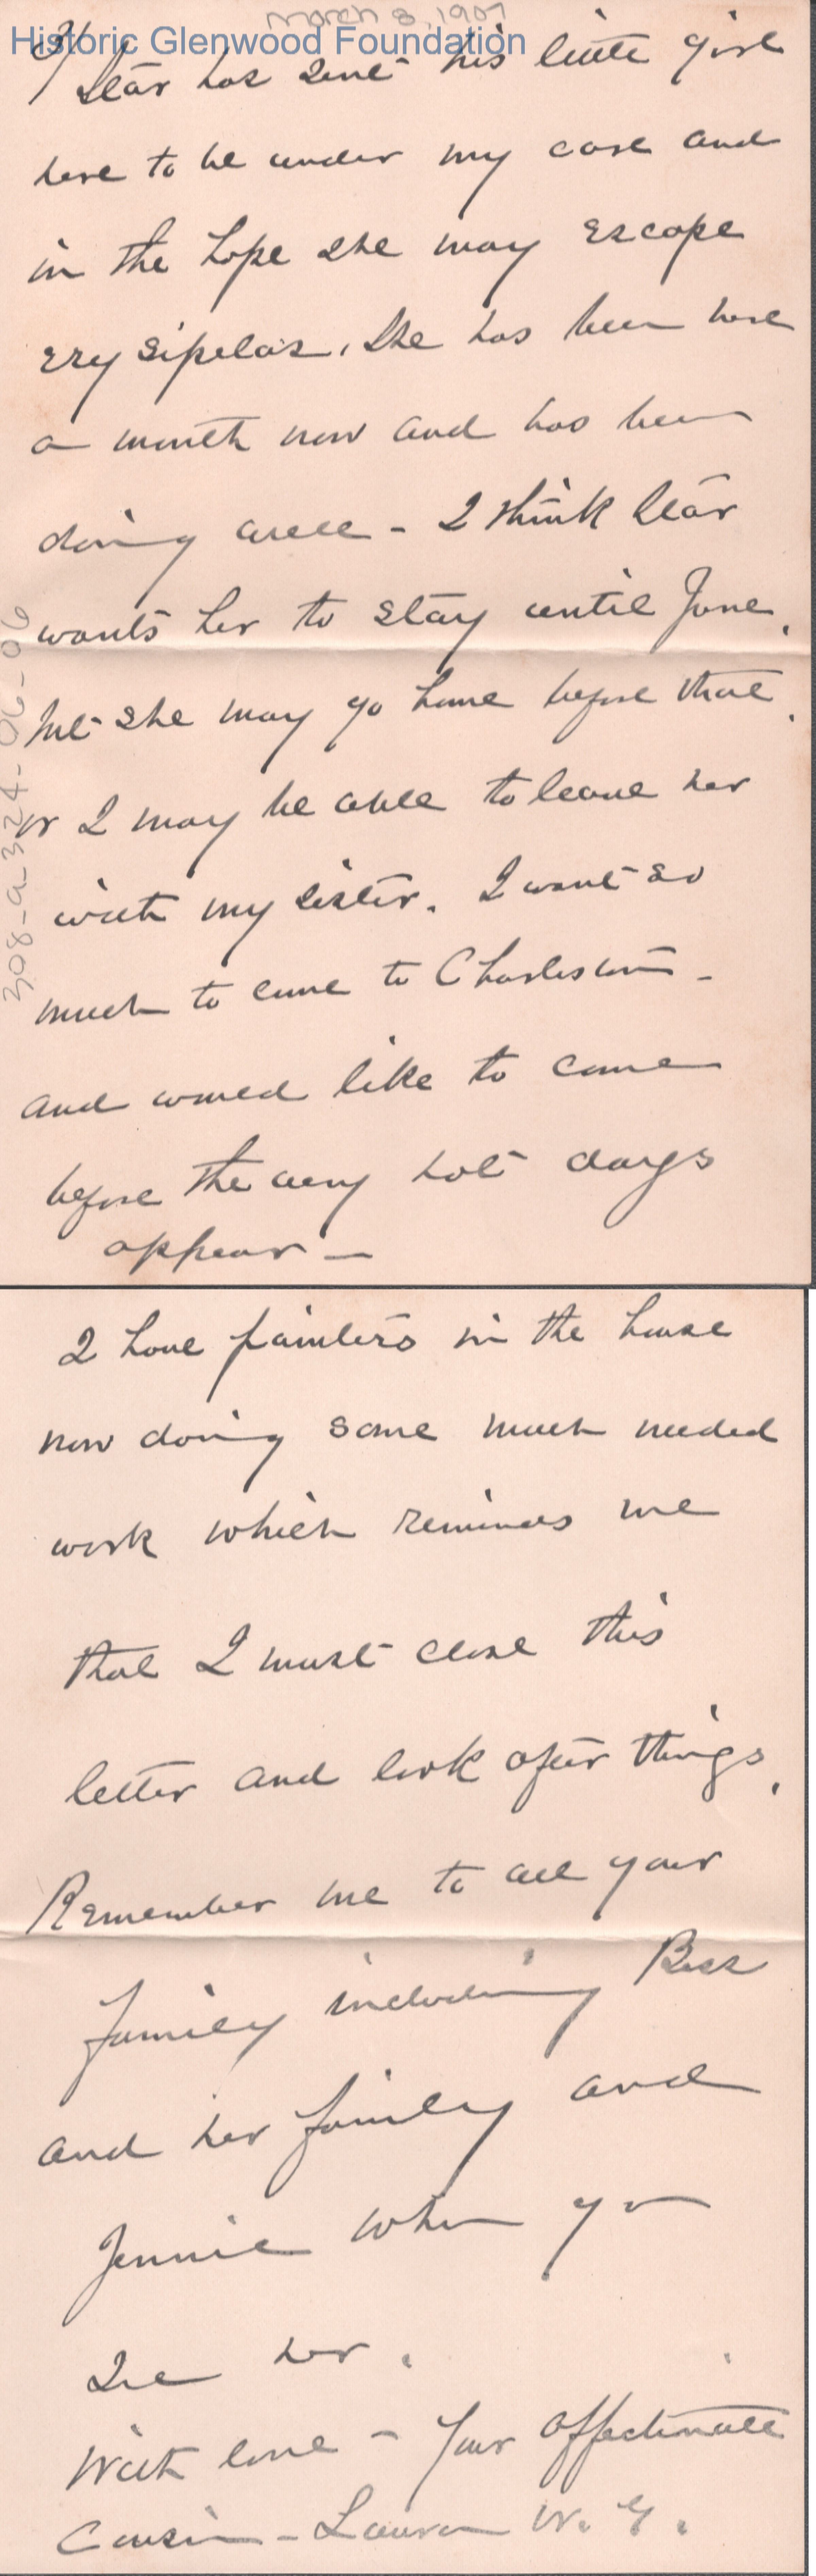 March 8, 1907
Historic Glenwood Foundation
has sent his little girl
here to be under my care and
in the hope she may escape
erysipelas. She has been here
a month now and has been
doing well - I think
wants her to stay until June,
but she may go home before that,
or I may be able to leave her
with my sister. I want so
much to come to Charleston -
and would like to come
before the very hot days
appear -
308-a-324-06-06
I have painters in the house
now doing some much needed
work which reminds me
that I must close this
letter and look after things.
Remember me to all your
family including Bess
and her family and
Jennie when you
see her.
With love - Your affectionate
Cousin - Laura W. G.